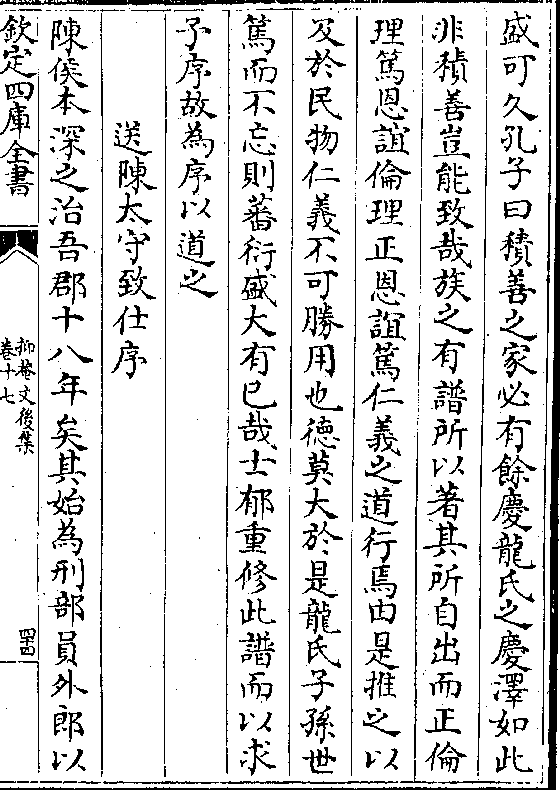 盛可久孔子曰積善之家必有餘慶龍氏之慶澤如此
非積善豈能致哉族之有譜所以著其所自出而正倫
理篤恩誼倫理正恩誼篤仁義之道行焉由是推之以
及於民物仁義不可勝用也德莫大於是龍氏子孫世
篤而不忘則蕃衍盛大有已哉士郁重修此譜而以求
予序故為序以道之
送陳太守致仕序
陳侯本深之治吾郡十八年矣其始為刑部員外郎以
欽定四庫全書
抑菴文後集
卷十七
四十四